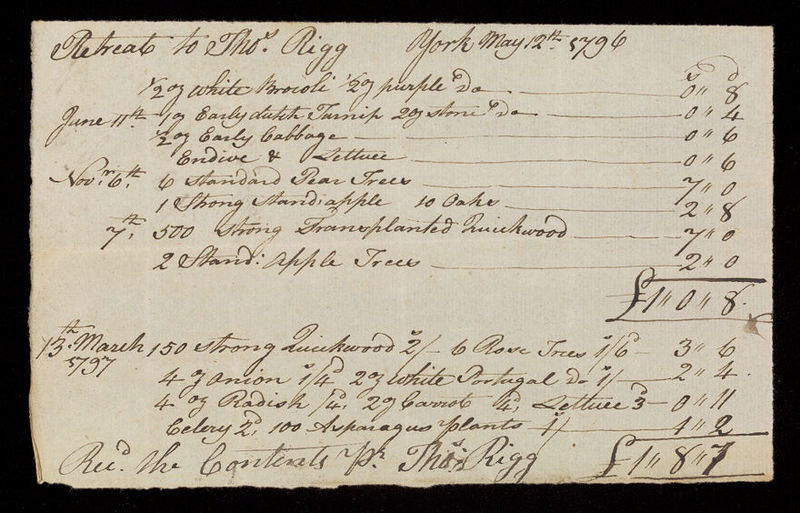 Retreat to Thos. Rigg York May 12th. 1796
s d
½ oz White Brocoli ½ oz purple Do 0 " 8
June 11th. 1 oz Early dutch Turnip 2 oz stone Do 0 " 4
½ oz Early Cabbage 0 " 6
Endive & Lettuce 0 " 6
Novr. 6th. 6 Standard Pear Trees 7 " 0
1 Strong Stand: apple 10 Oaks 2 " 8
7th. 500 Strong Transplanted Quickwood 7 " 0
2 Stand: Apple Trees 2 " 0
£1 " 0 " 8.
13th. March 150 strong Quickwood 2s/- 6 Rose Trees 1s/6d 3 " 6
1797
4 oz onion 1s/4d 2 oz White Portugal Do 1s/ 2 " 4.
4 oz Radish /4d, 2 oz Carrot 4d, Lettuce 3d 0 " 11
Celery 2d, 100 Asparagus plants 1s/ 1 " 2
Recd. the Contents pr. Thos. Rigg £1 " 8 " 7